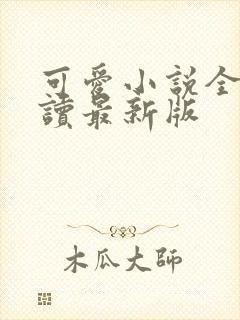 可愛小説全
讀最新版
木瓜大師